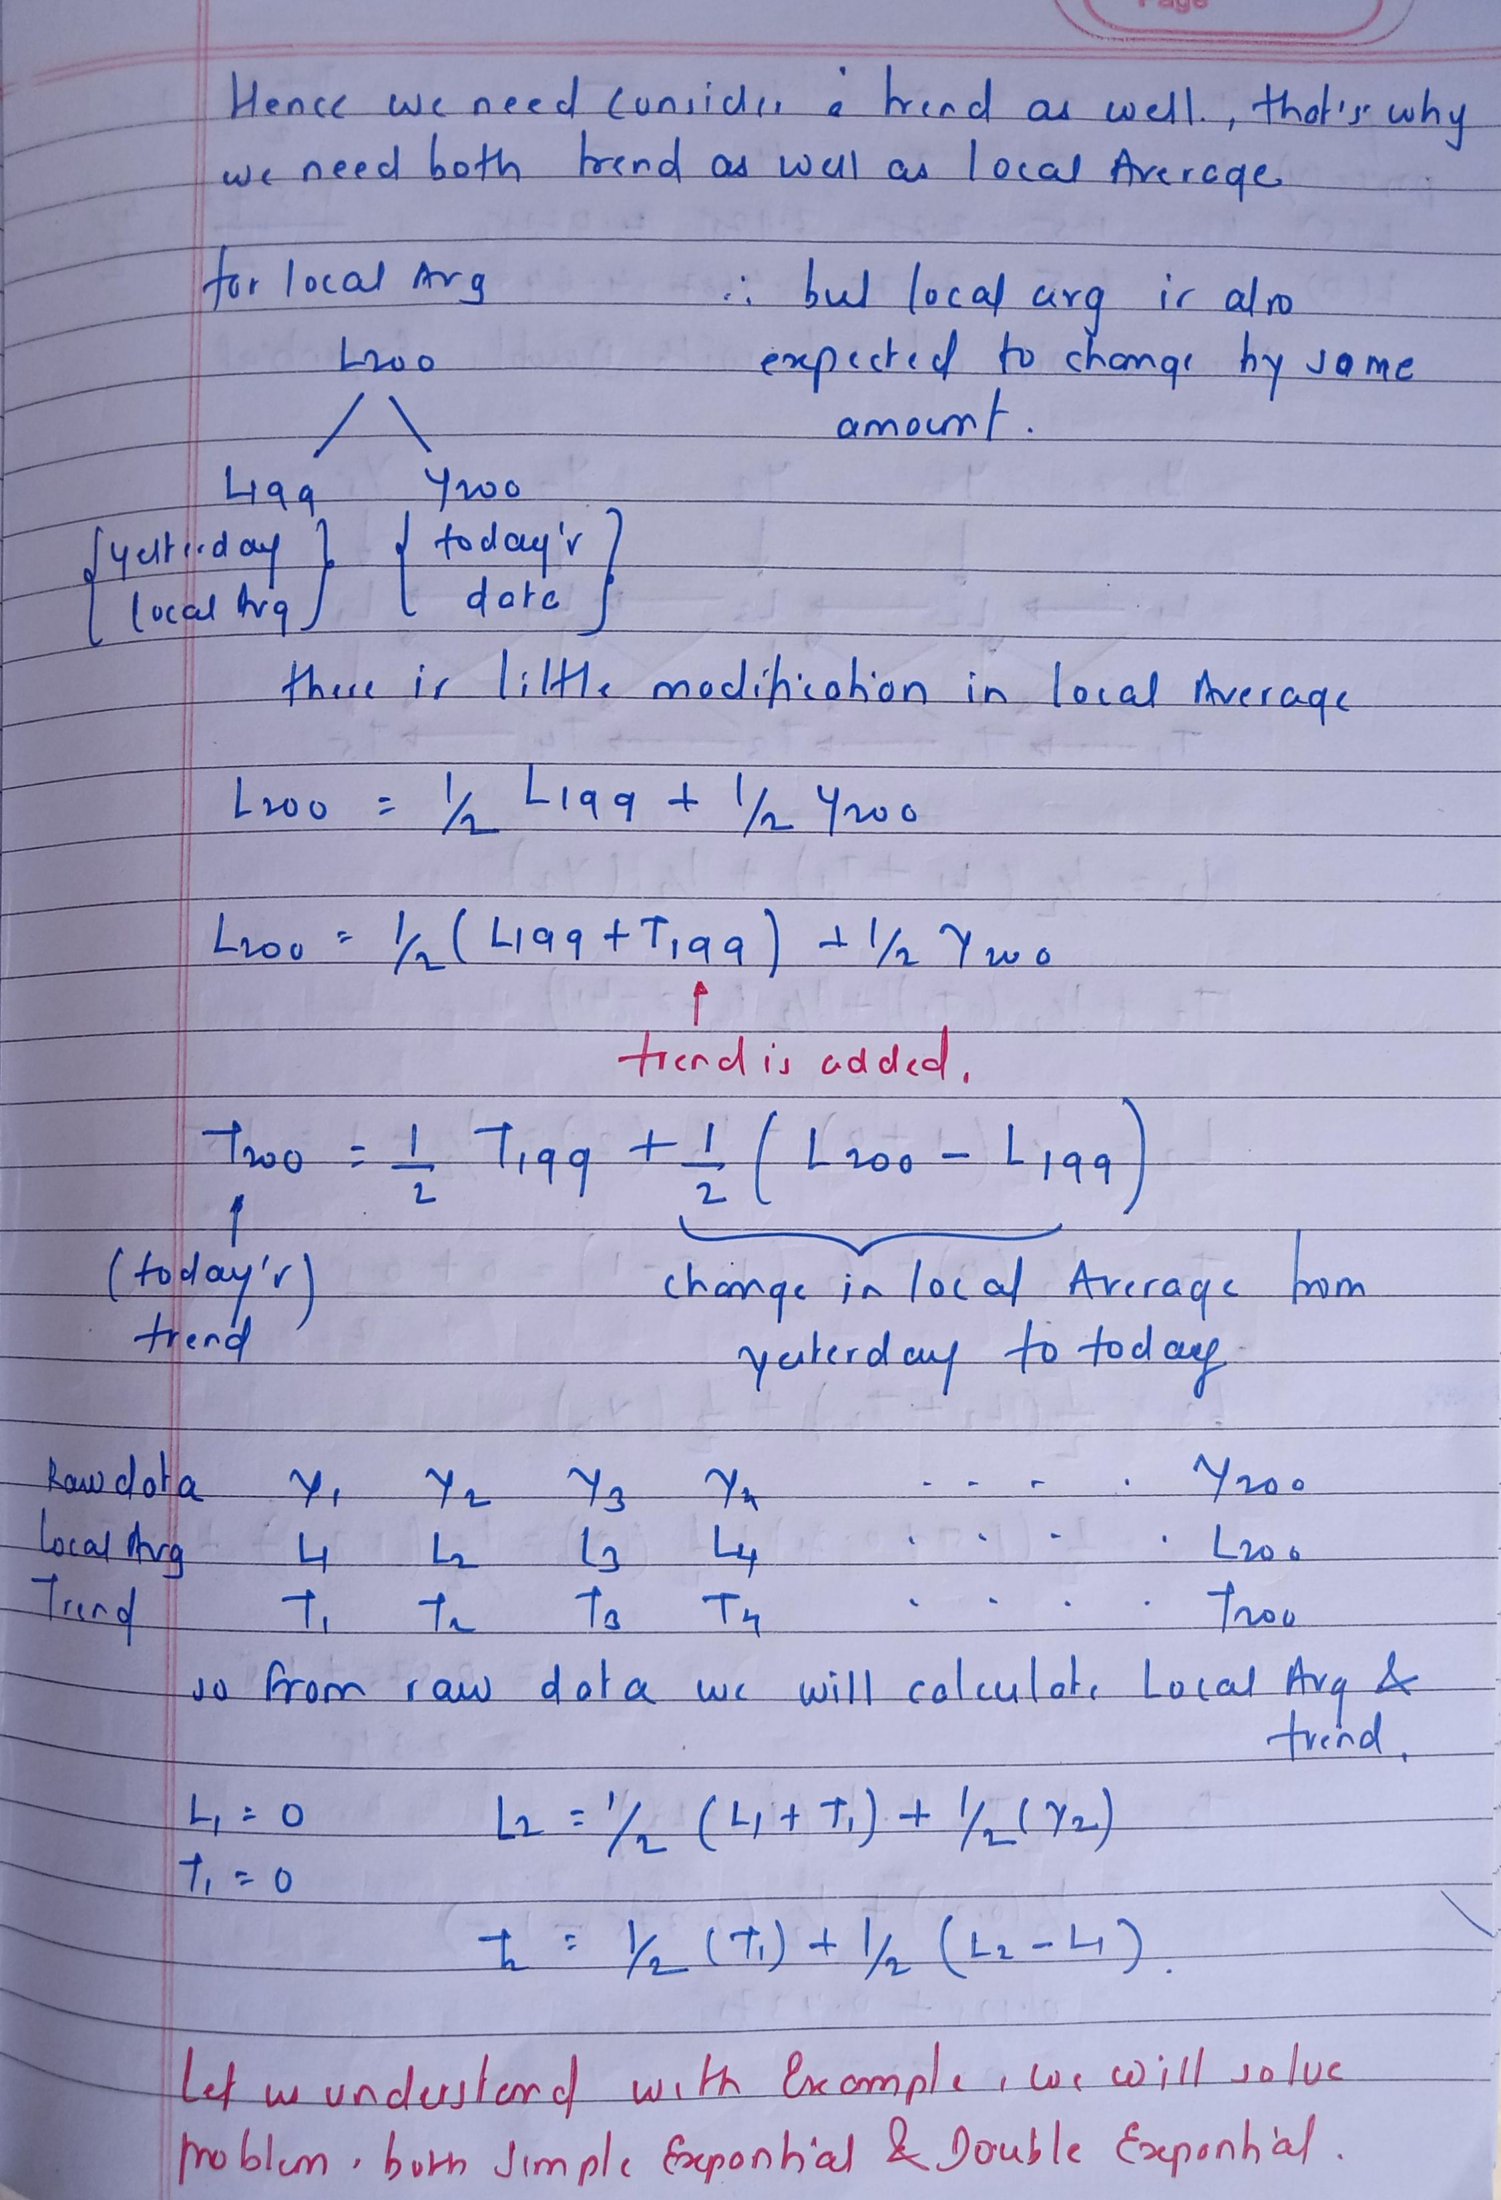 Page
Hence we need consider a trend as well, that's why
we need both trend as well as local Average
for local Avg
L200
L199 Y200
{yesterday local Avg} {today's data}
∴ but local avg is also
expected to change by some
amount.
there is little modification in local Average
L200 = 1/2 L199 + 1/2 Y200
L200 = 1/2 (L199 + T199) + 1/2 Y200
↑
trend is added.
T200 = 1/2 T199 + 1/2 (L200 - L199)
↑
(today's)
trend
change in local Average from
yesterday to today
Raw data Y1 Y2 Y3 Y4 . . . . Y200
Local Avg L1 L2 L3 L4 . . . . L200
Trend T1 T2 T3 T4 . . . . T200
so from raw data we will calculate Local Avg &
trend.
L1 = 0 L2 = 1/2 (L1 + T1) + 1/2 (Y2)
T1 = 0
T2 = 1/2 (T1) + 1/2 (L2 - L1).
Let us understand with Example, we will solve
problem, both Simple Exponential & Double Exponential.